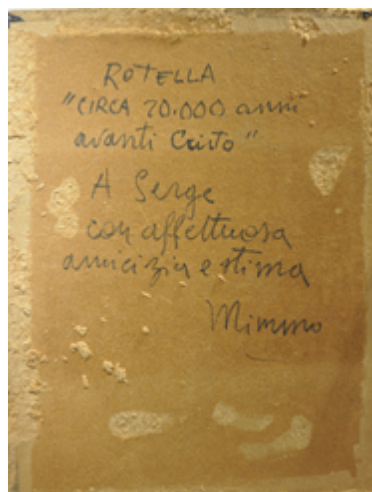 ROTELLA
"CIRCA 20.000 anni
avanti Cristo"
A Serge
con affettuosa
amicizia e stima
Mimmo